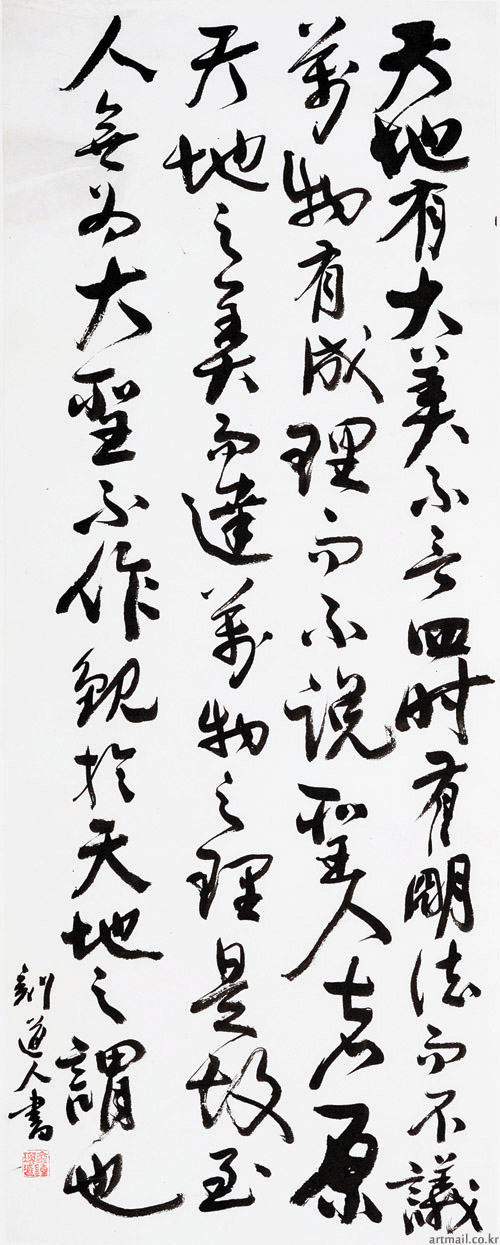 天地有大美不言四時有明法而不議
萬物有成理而不説聖人者原
天地之美而達萬物之理是故至
人無為大聖不作觀於天地之謂也
道人書
artmail.co.kr